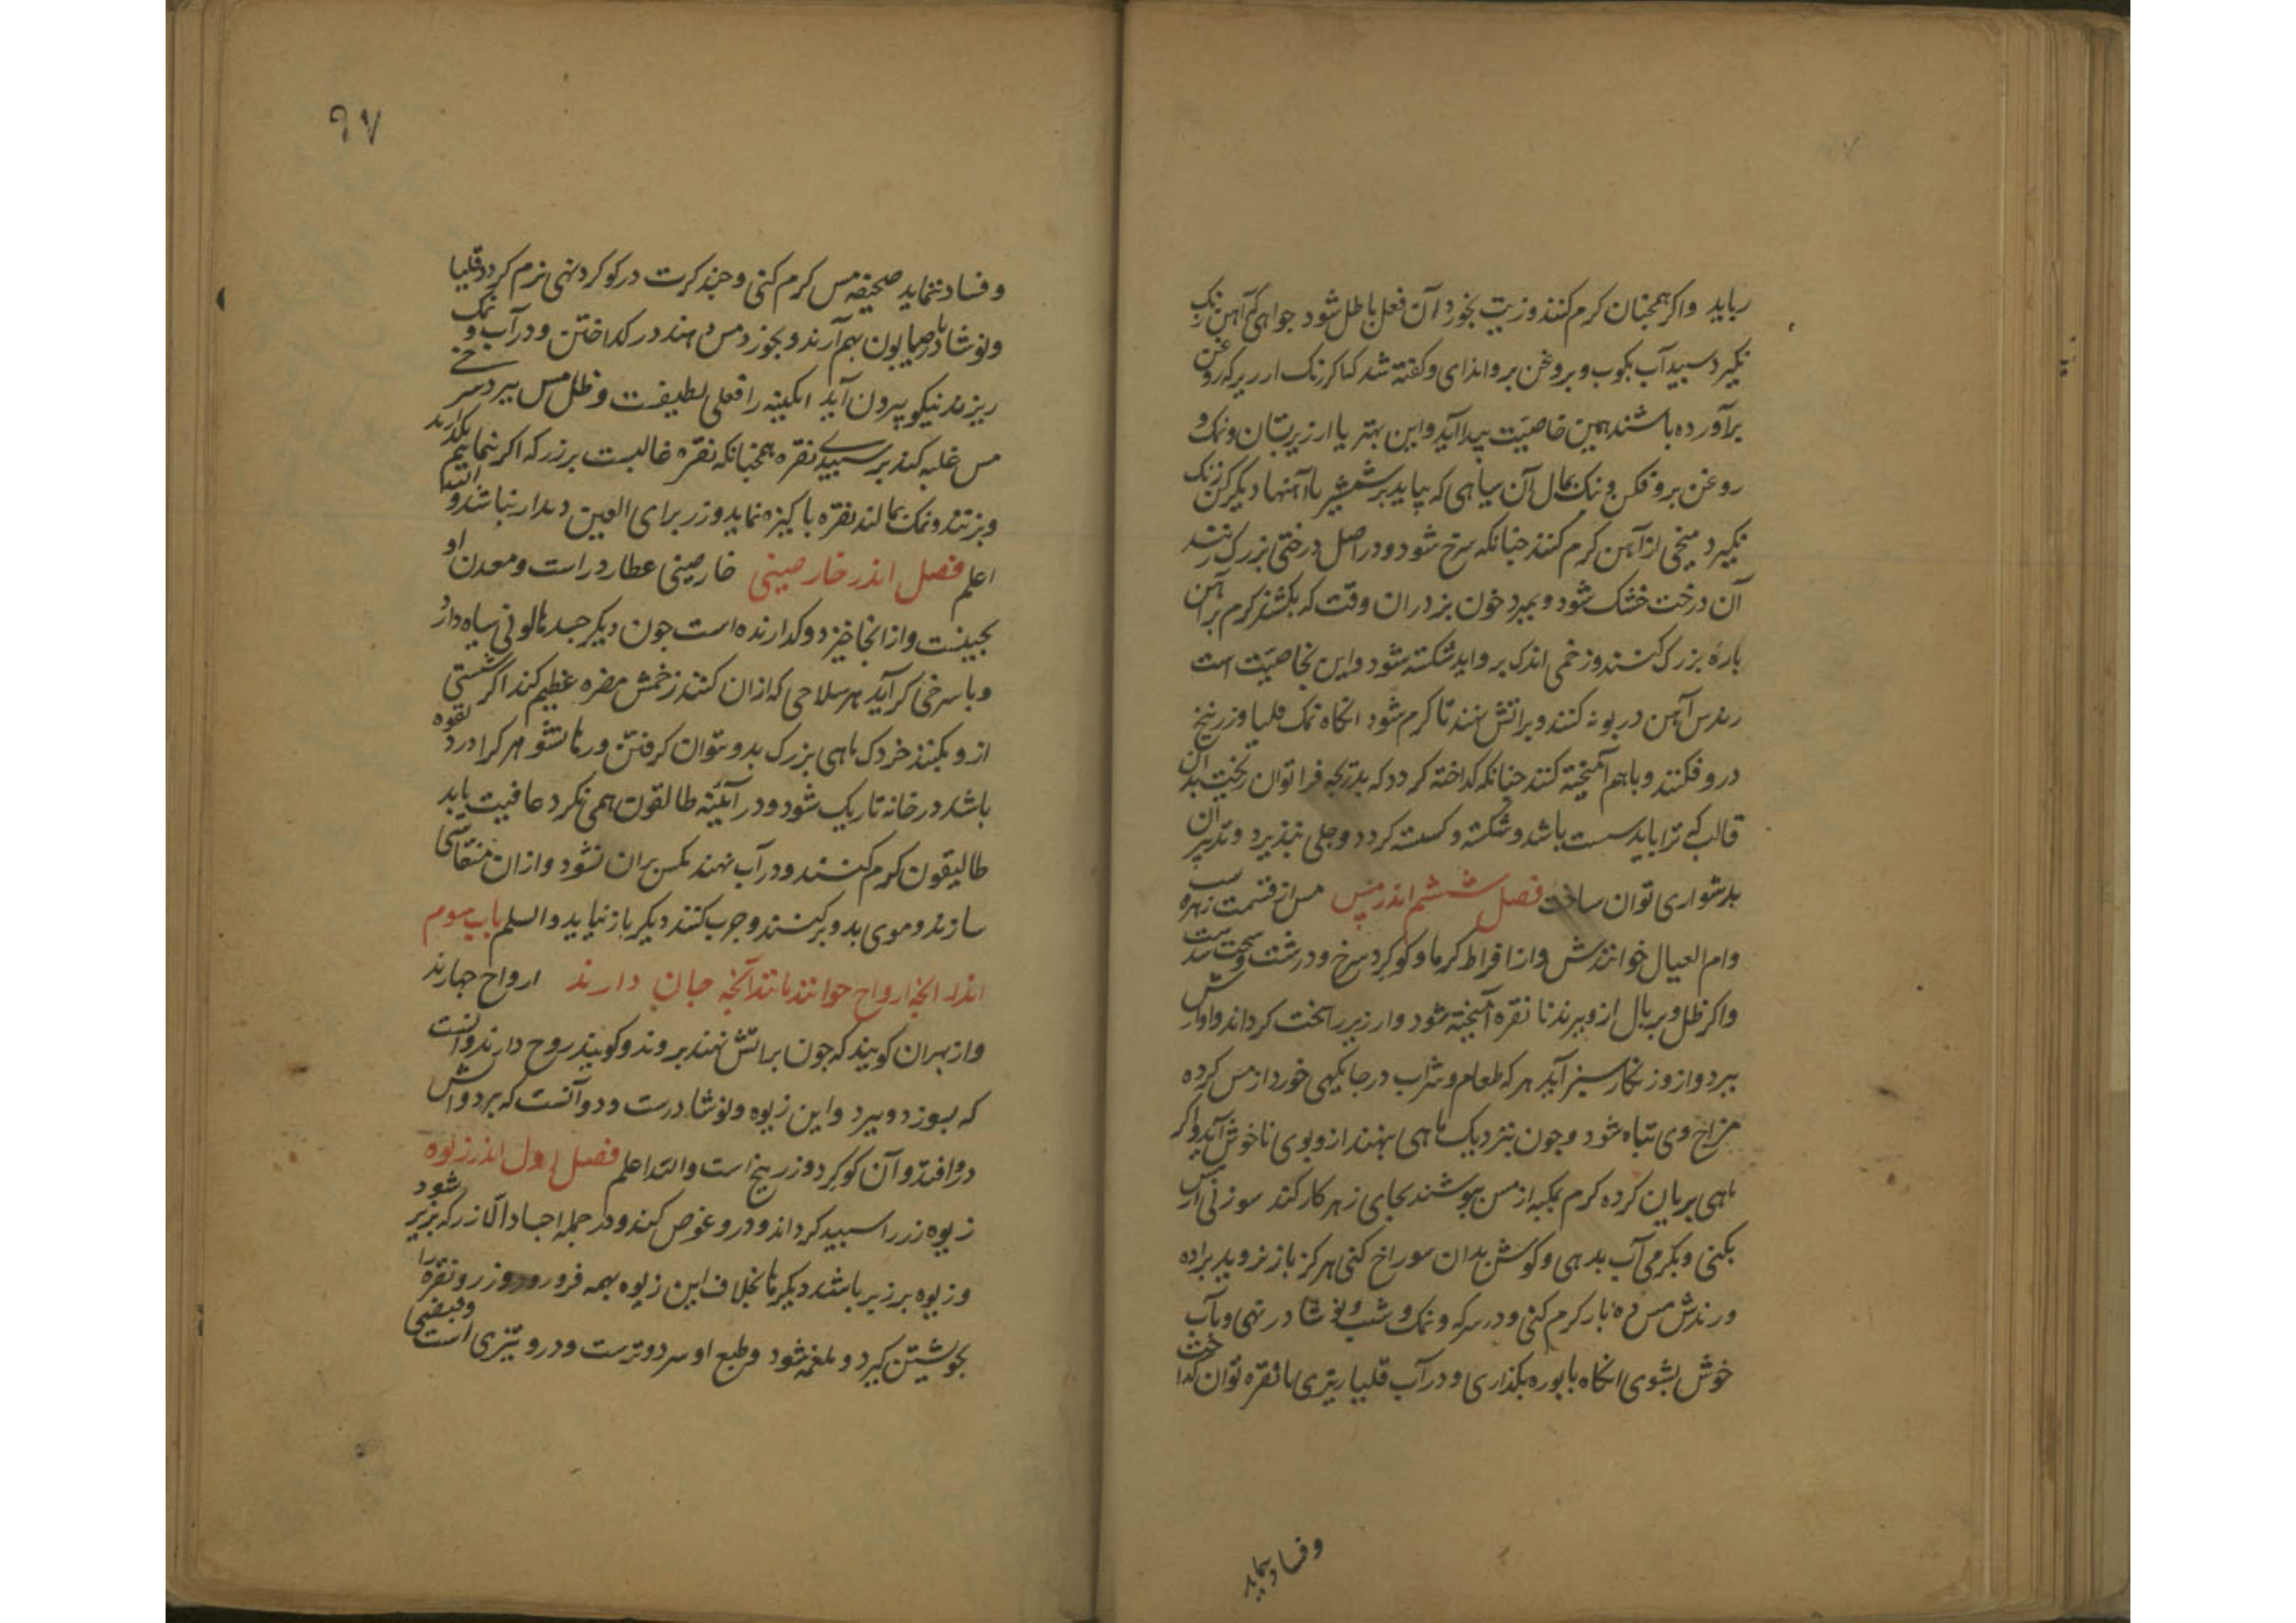 رباید واکر همچنان کرم کنند و زیت بخورد آن فعل باطل شود جو خواهی که آهن زنک
نکیرد سپید آب بکوب و بروغن برو اندای وکفته شد که اکر زنک ار زیر که روغن
برآورده باشند همین خاصیت پیدا آید و این بهتر یا ارزیر بتان و نمک و
روغن برو فکن و نیک بمال آن سیاهی که بیاید بر شمشیر یا آهنها دیکر کن زنک
نکیرد میخی از آهن کرم کنند جنانکه سرخ شود و در اصل درختی بزرک زنند
آن درخت خشک شود و بمیرد خون بز دران وقت که بکشند کرم بر آهن
پارهٔ بزرک کنند و زخمی اندک برو اید شکسته شود و این بخاصیت است
آهن در بوته کنند و براتش نهند تا کرم شود انکاه نمک قلیا و زرنیخ
درو فکنند و باهم آمیخته کنند جنانکه کداخته کردد که بدریجه فرا توان ریخت بدان
قالب که ترا باید سست باشد و شکسته و کسسته کردد و جلی نپذیرد و تدبیر ان
بدشواری توان ساخت فصل ششم اندر مس مس از قسمت زهره است
وام العیال خوانندش و از افراط کرما و کوکرد سرخ و درشت و سخت شدست
واکر ظل و بربال ازو ببرند با نقره آمیخته شود و ارزیر را سخت کرداند و اوازش
ببرد و ازو زنکار سبز آید هر که طعام و شراب در جایکهی خورد از مس کرده
مزاج وی تباه شود و جون نزدیک ماهی بنهند ازو بوی ناخوش آید و اکر
ماهی بریان کرده کرم بمکبه از مس بپوشند بجای زهر کار کند سوزنی از مس
بکنی و بکرمی آب بدهی و کوش بدان سوراخ کنی هرکز باز نروید براده
ورندش مس ده بار کرم کنی و در سرکه و نمک و شب و نوشادر نهی و بآب
خوش بشوی انکاه با بوره بکذاری و در آب قلیا ریزی با نقره توان کداخت
و فساد نماید
٩٧
و فساد ننماید صحیفه مس کرم کنی و جند کرت در کوکرد نهی نرم کردد قلیا
ونوشادر با صابون بهم آرند و بخورد مس دهند در کداختن و در آب و نمک
ریزند نیکو بیرون آید ابکینه را فعلی لطیفست و ظل مس ببرد سرخی
مس غلبه کند بر سپیدی نقره همچنانکه نقره غالبست بر زر که اکر نیمانیم بکدازند
و بزنند و نمک بمالند نقره پاکیزه نماید و زر برای العین دیدار نباشد والله
اعلم فصل اندر خارصینی خارصینی عطارد راست و معدن او
بچینست و از انجا خیزد و کدازنده است جون دیکر جسدها لونی سیاه دارد
و با سرخی کراید هر سلاحی که ازان کنند زخمش مضره عظیم کند اکر شستی
ازو بکنند خردک ماهی بزرک بدو توان کرفتن و رها نشود هر کرا درد لقوه
باشد در خانه تاریک شود و در آینه طالقون همی نکرد عافیت یابد
طالیقون کرم کنند و در آب نهند مکس بران نشود و ازان منقاشی
سازند و موی بدو برکنند و چرب کنند دیکر باز نیاید والسلم باب سوم
اندر انچه ارواح خوانند مانند آنچه جان دارند ارواح چهارند
و از بهران کویند که جون براتش نهند بروند و کویند روح دارند دوانست
که بسوزد و ببرد و این زیوه و نوشادرست و دو آنست که برد و اتش
درو افتد و آن کوکرد و زرنیخ است والله اعلم فصل اول اندر زیوه
زیوه زر را سپید کرداند و درو غوص کند و در جمله اجساد الا زر که بزیر شود
و زیوه بر زیر باشد دیکرها بخلاف این زیوه بهمه فرو رود و زر و نقره را
بخویشتن کیرد و ملغمه شود و طبع او سرد و ترست و درو تیزی است و قبضی